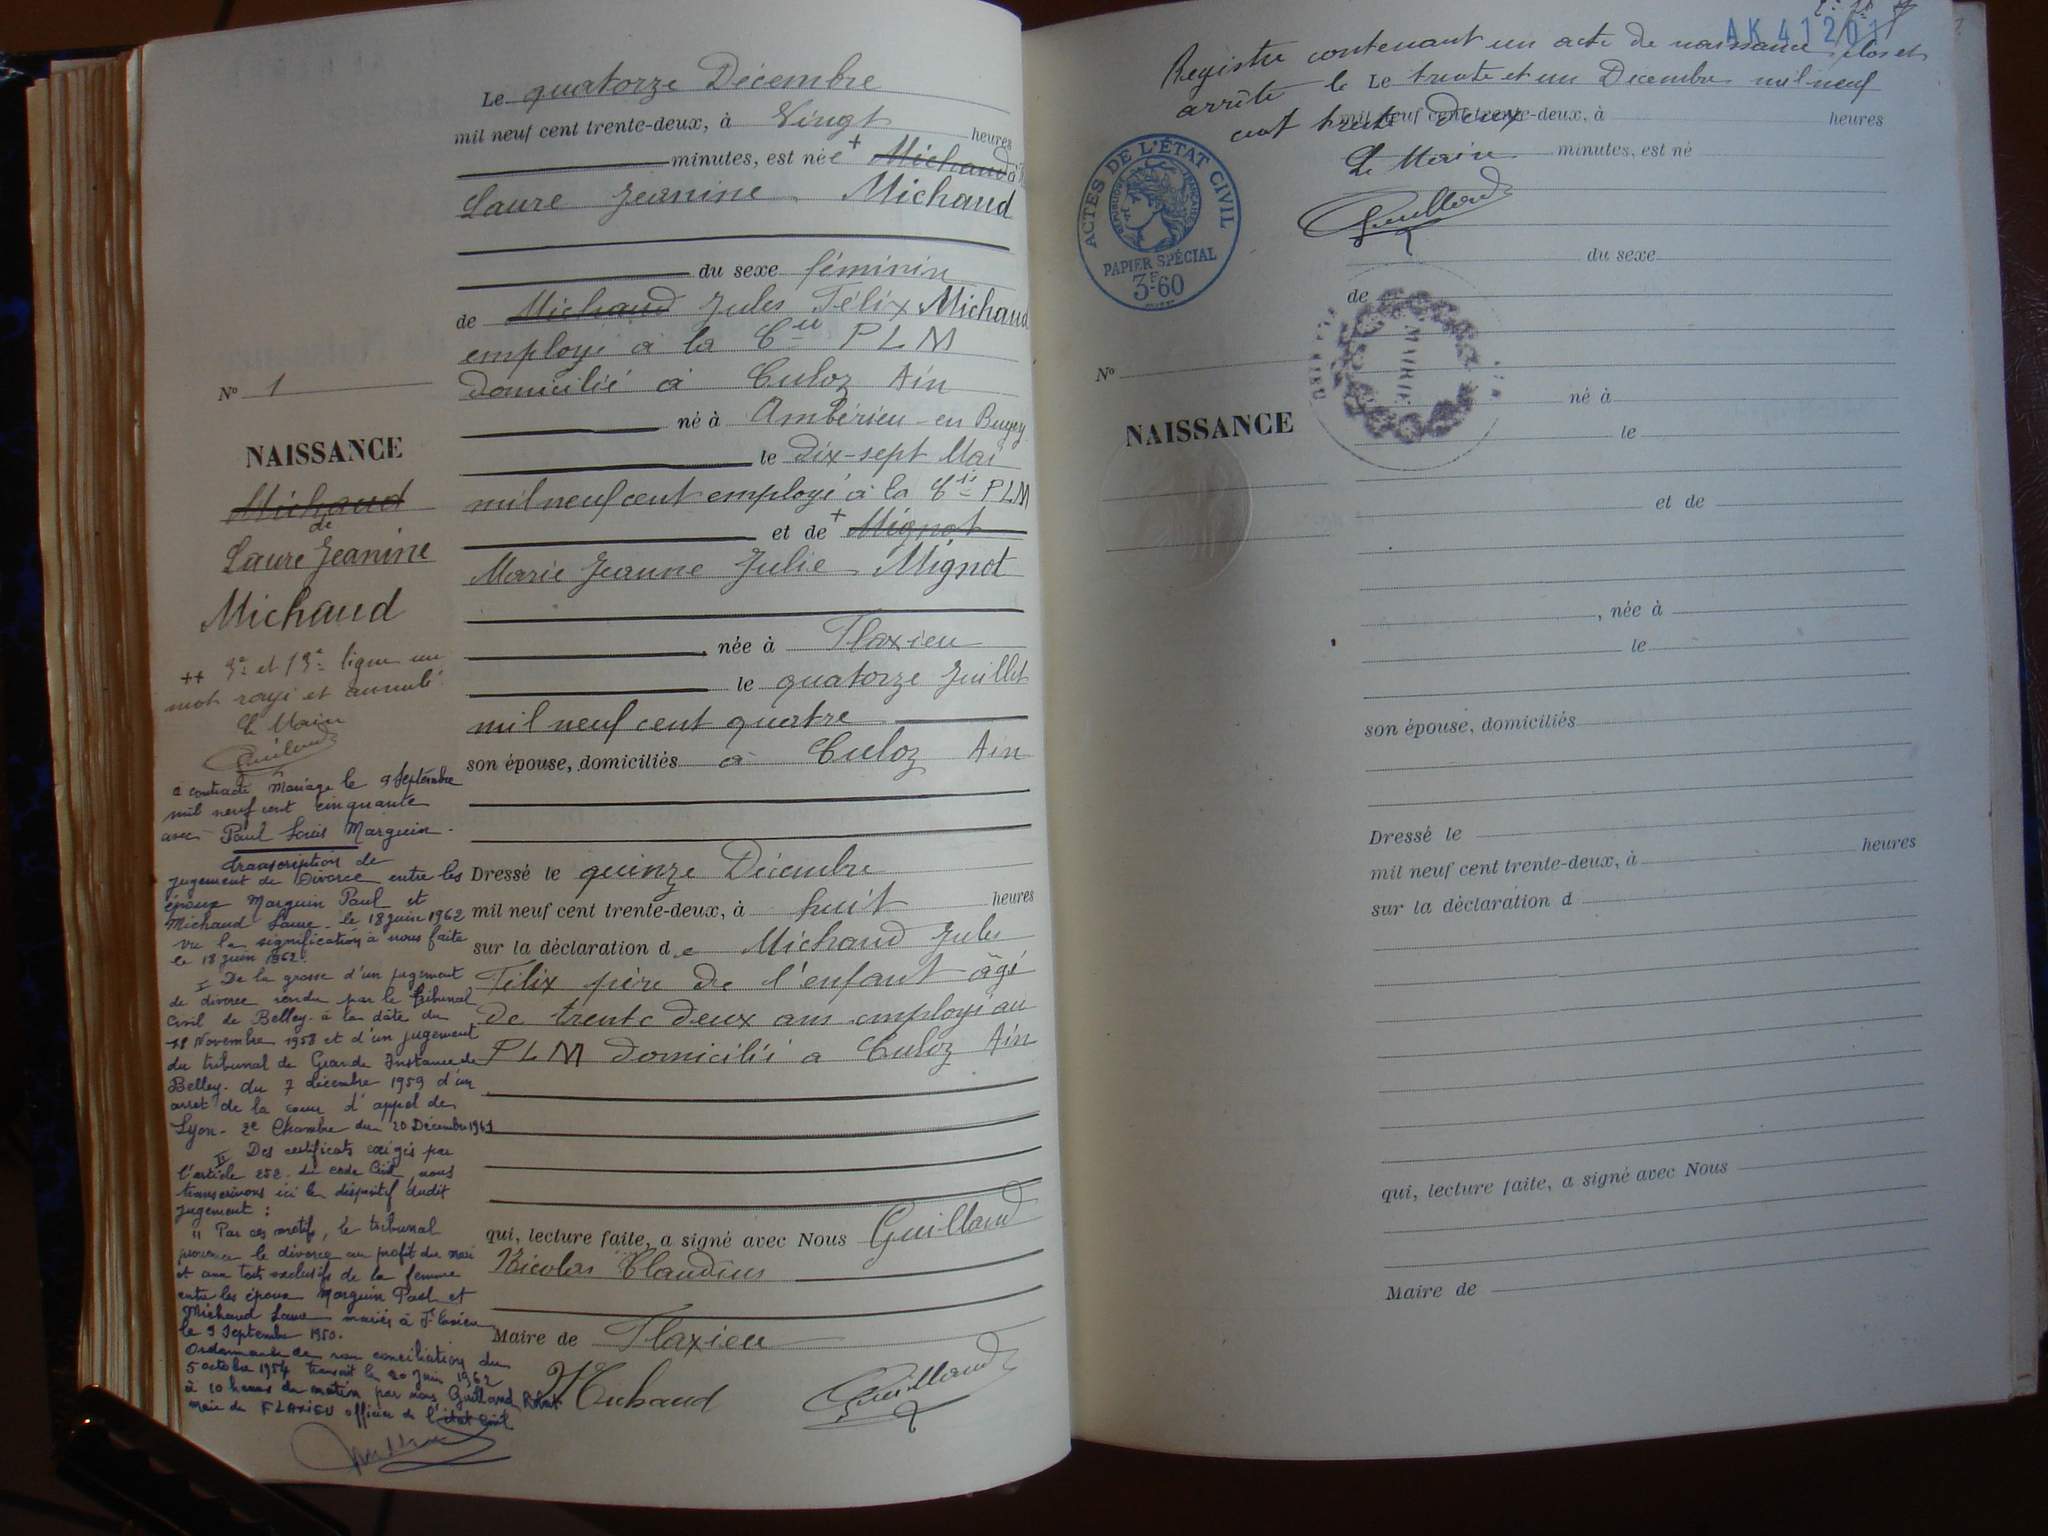 Le quatorze Décembre
mil neuf cent trente-deux, à Vingt heures
minutes, est née + Michaud
Laure Jeanine Michaud
du sexe féminin
de Michaud Jules Félix Michaud
employé à la Cie PLM
domicilié à Culoz Ain
né à Ambérieu-en Bugey
le Dix-sept Mai
mil neuf cent employé à la Cie PLM
et de + Mignot
Marie Jeanne Julie Mignot
née à Flaxieu
le quatorze Juillet
mil neuf cent quatre
son épouse, domiciliés à Culoz Ain
Dressé le quinze Décembre
mil neuf cent trente-deux, à huit heures
sur la déclaration de Michaud Jules
Félix père de l'enfant âgé
de trente deux ans employé au
PLM domicilié a Culoz Ain
qui, lecture faite, a signé avec Nous Guilland
Nicolas Claudius
Maire de Flaxieu
Michaud Guilland
No 1
NAISSANCE
Michaud
de
Laure Jeanine
Michaud
++ 3e et 13e ligne un
mot rayé et annulé
Le Maire
Guilland
a contracté Mariage le 9 Septembre
mil neuf cent cinquante
avec Paul Louis Marguin.
transcription de
jugement de Divorce entre les
époux Marguin Paul et
Michaud Laure le 18 juin 1962
vu la signification à nous faite
le 18 juin 1962.
I De la grosse d'un jugement
de divorce rendu par le tribunal
Civil de Belley à la dâte du
18 Novembre 1958 et d'un jugement
du tribunal de Grande Instance de
Belley. du 7 décembre 1959 d'un
arret de la cour d'appel de
Lyon- 2e Chambre du 20 Décembre 1961
II Des certificats exigés par
l'article 252 du code Civil, nous
transcrivons ici le dispositif dudit
jugement :
" Par ces motifs, le tribunal
prononce le divorce au profit du mari
et aux torts exclusifs de la femme
entre les époux Marguin Paul et
Michaud Laure mariés à Flaxieu
le 9 Septembre 1950.
Ordonnance de non conciliation du
5 octobre 1954 transcrit le 20 Juin 1962
à 10 heures du matin par nous Guilland
maire de FLAXIEU officier de l'état civil
AK 41201
Registre contenant un acte de naissance clos et
arrêté le Le trente et un Décembre mil neuf
cent trente deux
mil neuf cent trente-deux, à heures
Le Maire minutes, est né
Guilland
ACTES DE L'ÉTAT CIVIL
RÉPUBLIQUE FRANÇAISE
PAPIER SPÉCIAL
3F60
du sexe
de
MAIRIE
No
NAISSANCE
né à
le
et de
, née à
le
son épouse, domiciliés
Dressé le
mil neuf cent trente-deux, à heures
sur la déclaration d
qui, lecture faite, a signé avec Nous
Maire de